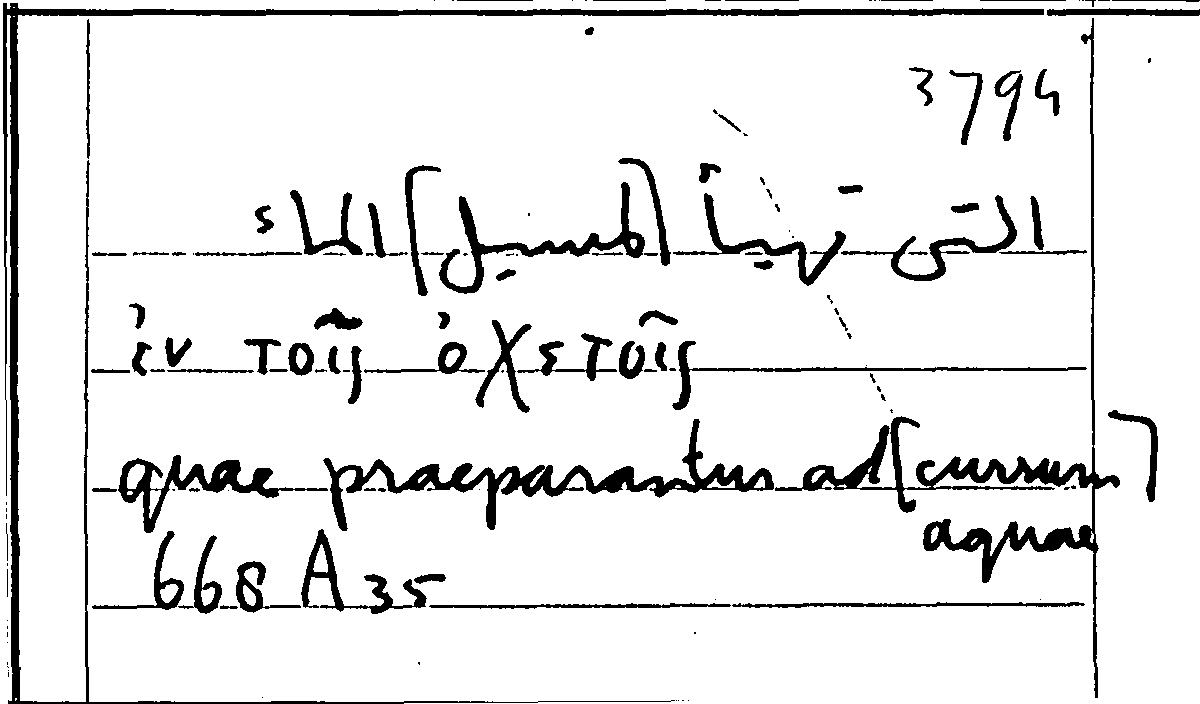 3794
التى تهيأ [لمسيل] الماء
ἐν τοῖς ὀχετοῖς
quae praeparantur ad [cursum]
aquae
668 A 35